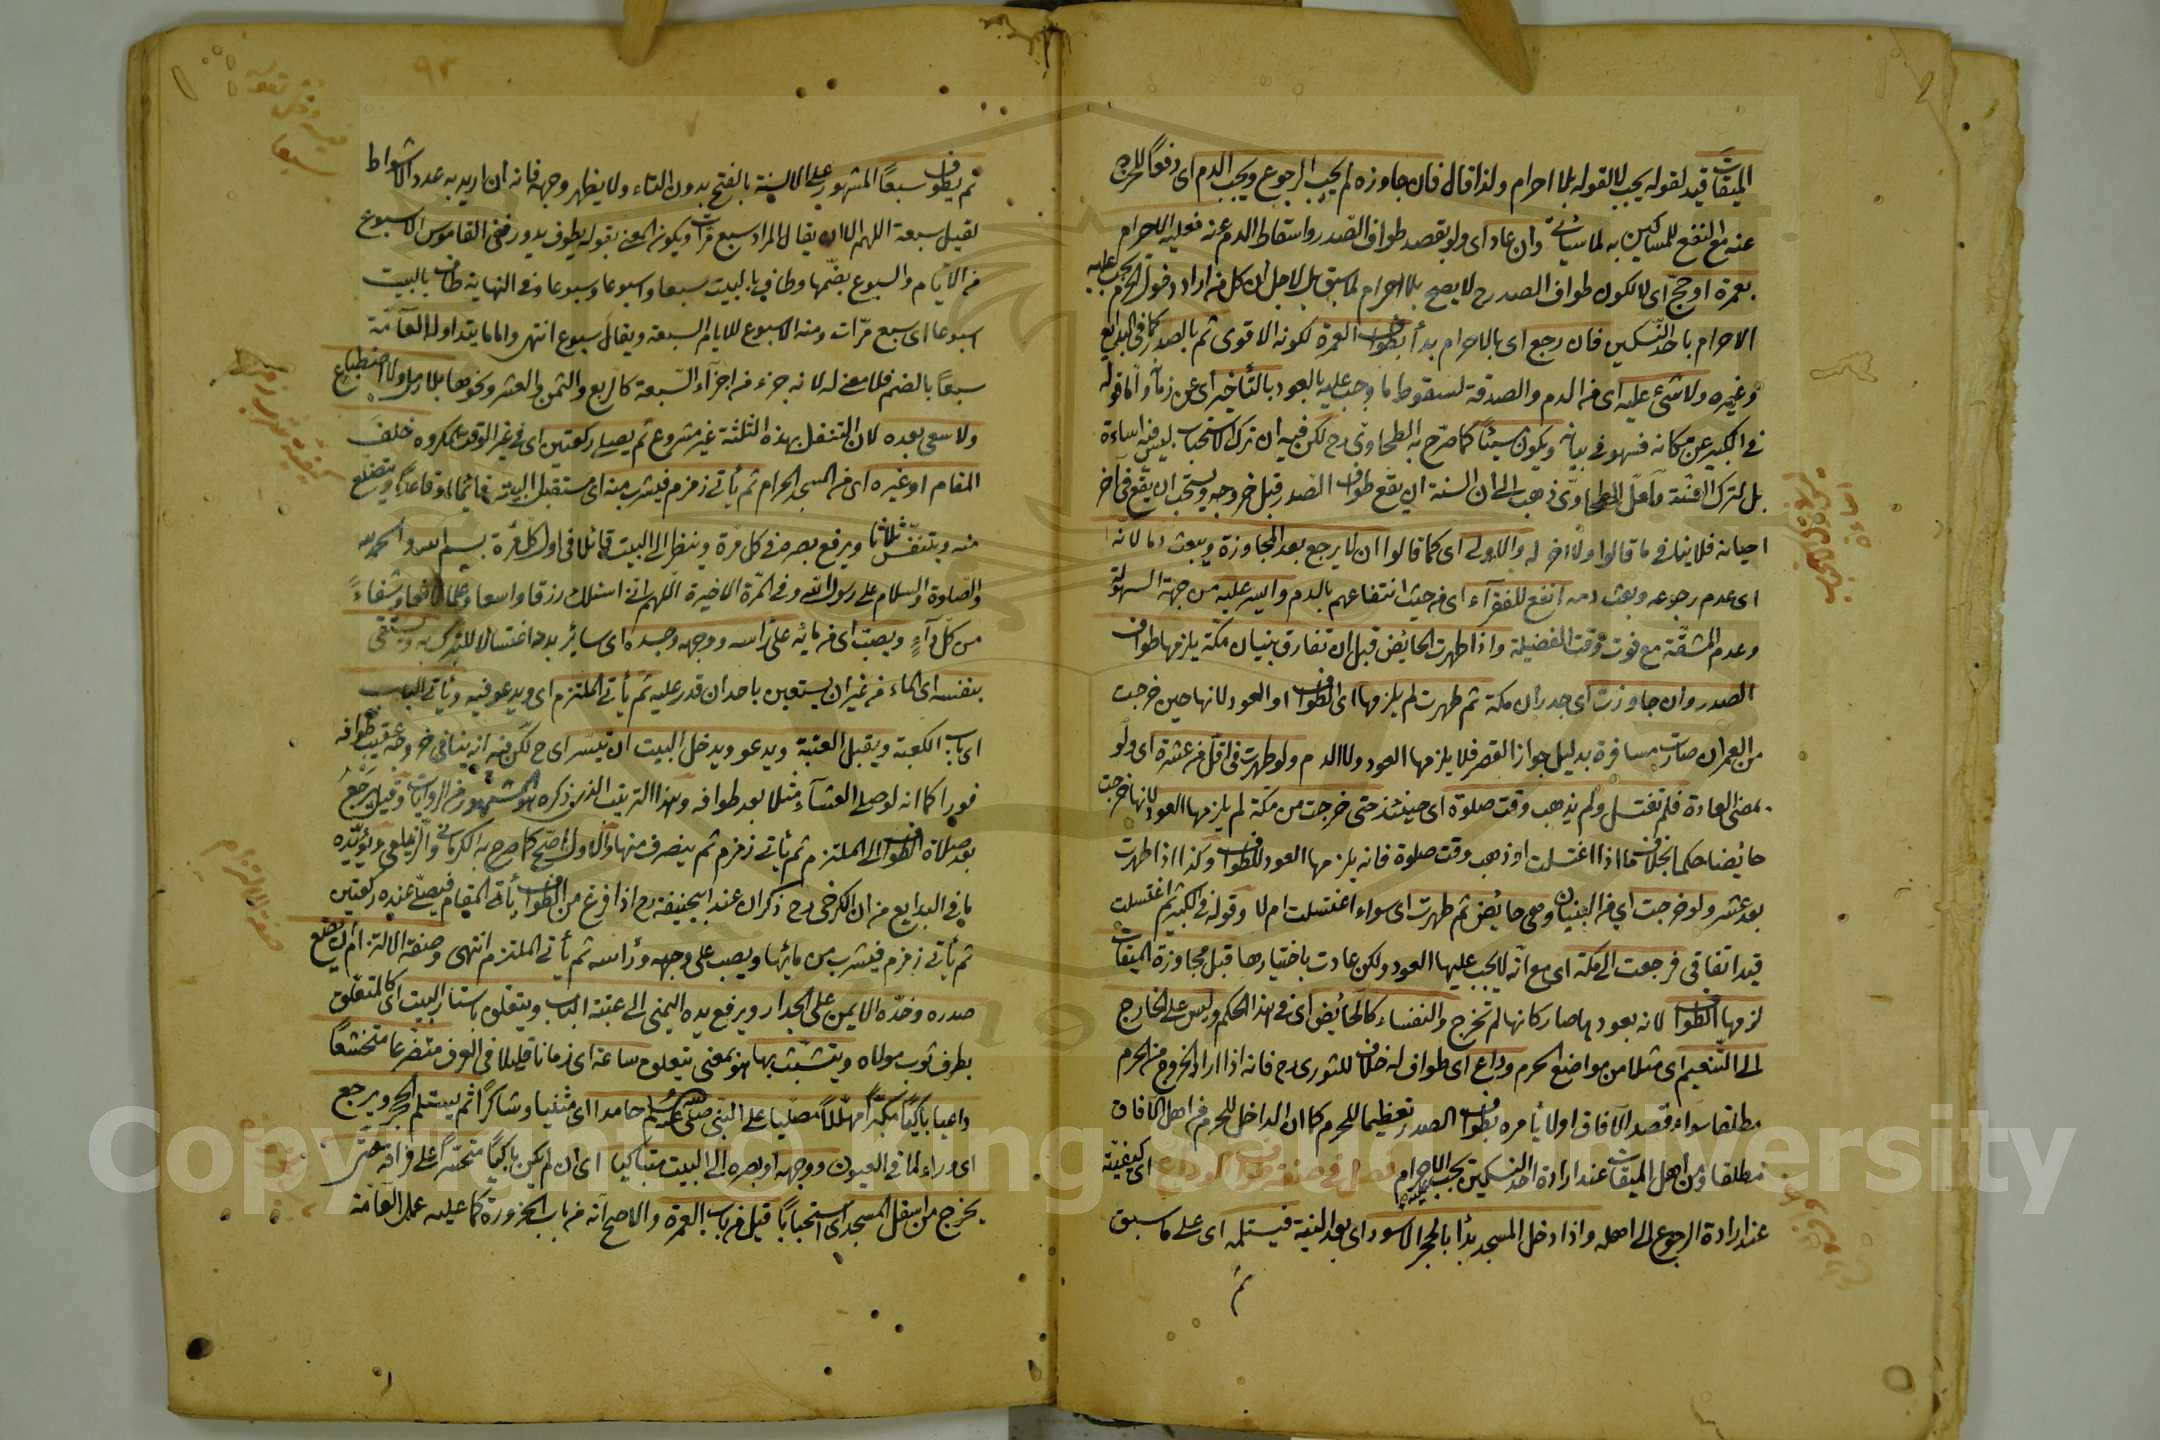 الميقات قيد لقوله يجب لا لقوله بلا احرام ولذا قال فان جاوزه لم يجب الرجوع ويجب الدم اى دفعًا للحرج
عنه مع النفع للمساكين به لما سيأتى وان عاد اى ولو بقصد طواف الصدر واسقاط الدم عنه فعليه الاحرام
بعمرة او حج اى لا لكون طواف الصدر لا يصح بلا احرام لما سبق بل لاجل ان كل من اراد دخول الحرم يجب عليه
الاحرام باحد النسكين فان رجع اى بالاحرام بدأ بطواف العمرة لكونه الاقوى ثم بالصدر كما فى البدايع
وغيره ولا شئ عليه اى من الدم والصدقة لسقوط ما وجب عليه بالعود بالتأخير اى عن زمانه واما قوله
فى الكبير عن مكانه فسهو فى بيانه ويكون مسيئا كما صرح به الطحاوى رح لكن فيه ان ترك الاستحباب ليس فيه اساءة
بل لترك السنة ولعل الطحاوى ذهب الى ان السنة ان يقع طواف الصدر قبل خروجه ويستحب ان يقع فى آخر
احيانه فلا ينافى ما قالوا ولا آخر له والاولى اى كما قالوا ان لا يرجع بعد المجاوزة ويبعث دما لانه
اى عدم رجوعه وبعث دمه انفع للفقرآء اى من حيث انتفاعهم بالدم وايسر عليه من جهة السهولة
وعدم المشقة مع فوت وقت الفضيلة واذا طهرت الحائض قبل ان تفارق بنيان مكة يلزمها طواف
الصدر وان جاوزت اى جدران مكة ثم طهرت لم يلزمها اى الطواف او العود لانها حين خرجت
من العمران صارت مسافرة بدليل جواز القصر فلا يلزمها العود ولا الدم ولو طهرت فى اقل من عشرة اى ولو
بمضى العادة فلم تغتسل ولم يذهب وقت صلوة اى حينئذ حتى خرجت من مكة لم يلزمها العود لانها خرجت
حائضا حكما بخلاف ما اذا اغتسلت او ذهب وقت صلوة فانه يلزمها العود للطواف وكذا اذا طهرت
بعد عشر ولو خرجت اى من البنيان وهى حائض ثم طهرت اى سواء اغتسلت ام لا وقوله فى الكبير ثم اغتسلت
قيد اتفاقى فرجعت الى مكة اى مع انه لا يجب عليها العود ولكن عادت باختيارها قبل مجاوزة الميقات
لزمها الطواف لانه بعودها صار كانها لم تخرج والنفساء كالحائض اى فى هذا الحكم وليس على الخارج
الى التنعيم اى مثلا من مواضع الحرم وداع اى طواف له خلافا للثورى رح فانه اذا اراد الخروج من الحرم
مطلقا سواء قصد الآفاق او لا يأمره بطواف الصدر تعظيما للحرم كما ان الداخل للحرم من اهل الآفاق
مطلقا ومن اهل الميقات عند ارادة احد النسكين يجب عليهم الاحرام فصل فى صفة طواف الوداع اى كيفيته
عند ارادة الرجوع الى اهله واذا دخل المسجد بدأ بالحجر الاسود اى بعد النية فيستلمه اى على ما سبق
ثم
ثم يطوف سبعًا المشهور على الالسنة بالفتح بدون التاء ولا يظهر وجهه فانه ان اريد به عدد الاشواط
لقيل سبعة اللهم الا ان يقال المراد سبع مرات ويكون المعنى بقوله يطوف يدور ففى القاموس الاسبوع
من الايام والسبوع بضمها وطاف بالبيت سبعا واسبوعا وسبوعا وفى النهاية طاف بالبيت
اسبوعا اى سبع مرات ومنه الاسبوع للايام السبعة ويقال سبوع انتهى واما ما يتداوله العآمة
سبعًا بالضم فلا معنى له لانه جزء من اجزآء السبعة كالربع والثمن والعشر ونحوها بلا رمل ولا اضطباع
ولا سعى بعده لان التنفل بهذه الثلثة غير مشروع ثم يصلى ركعتين اى فى غير الوقت المكروه خلف
المقام او غيره اى من المسجد الحرام ثم يأتى زمزم فيشرب منه اى مستقبل البيت قائما او قاعدا ويتضلع
منه ويتنفس ثلاثا ويرفع بصره فى كل مرة وينظر الى البيت قائلا فى اول كل مرة بسم الله والحمد لله
والصلوة والسلام على رسول الله وفى المرة الاخيرة اللهم انى اسئلك رزقا واسعا وعلما نافعا وشفاءً
من كل دآءٍ ويصب اى من مائه على رأسه ووجهه وجسده اى سائر بدنه اغتسالا للتبرك به ويستقى
بنفسه اى الماء من غير ان يستعين باحد ان قدر عليه ثم يأتى الملتزم اى ويدعو فيه ويأتى الباب
اى باب الكعبة ويقبل العتبة ويدعو ويدخل البيت ان تيسر اى ح لكن فيه انه ينافى خروجه عقيب طوافه
فورا كما انه لو صلى العشآء مثلا بعد طوافه وهذا الترتيب الذى ذكره هو المشهور من الروايات وقيل يرجع
بعد صلاة الطواف الى الملتزم ثم يأتى زمزم ثم ينصرف منها والاول اصح كما صرح به الكرمانى والزيلعى ويؤيده
ما فى البدايع من ان الكرخى رح ذكر ان عند ابيحنيفة رح اذا فرغ من الطواف يأتى المقام فيصلى عنده ركعتين
ثم يأتى زمزم فيشرب من مائها ويصب على وجهه ورأسه ثم يأتى الملتزم انتهى وصفة الالتزام ان يضع
صدره وخده الايمن على الجدار ويرفع يده اليمنى الى عتبة الباب ويتعلق باستار البيت اى كالمتعلق
بطرف ثوب مولاه ويتشبث بها هو بمعنى يتعلق ساعة اى زمانا قليلا فى العرف متضرعا متخشعًا
داعيا باكيًا مكبرًا مهللاً مصليا على النبى صلى الله عليه وسلم حامدا اى مثنيا وشاكرًا ثم يستلم الحجر ويرجع
اى وراء لما فى العيون ووجهه او بصره الى البيت متباكيا اى ان لم يكن باكيًا متحسرًا على فراقه حتى
يخرج من اسفل المسجد اى استحبابًا قيل من باب العمرة والاصح انه من باب الحزورة كما عليه عمل العآمة
صفة الالتزام